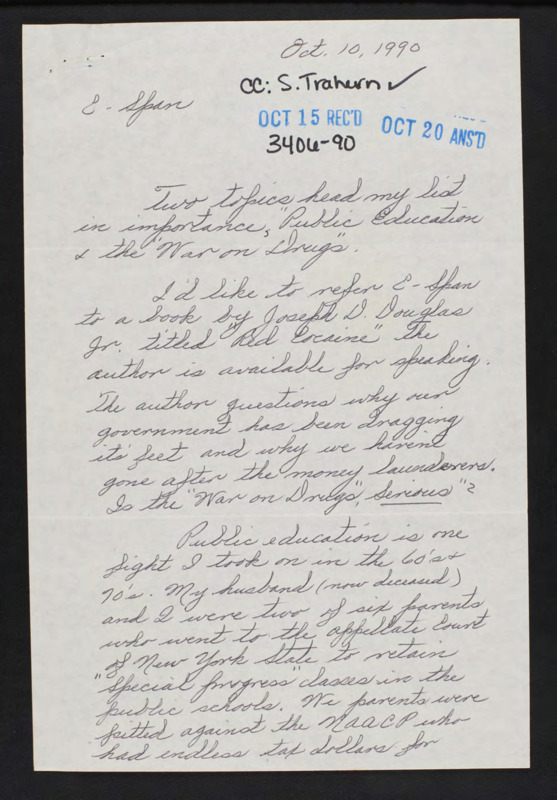 Oct. 10, 1990
cc: S. Trahern ✓
C-Span
OCT 15 REC'D
OCT 20 ANS'D
3406-90
Two topics head my list
in importance, "Public Education
& the "War on Drugs".
I'd like to refer C-Span
to a book by Joseph D. Douglas
Jr. titled "Red Cocaine" The
author is available for speaking.
The author questions why our
government has been dragging
its' feet and why we haven't
gone after the money launderers.
Is the "War on Drugs", Serious"?
Public education is one
fight I took on in the 60's &
70's. My husband (now deceased)
and I were two of six parents
who went to the appellate Court
of New York State to retain
"Special progress" classes in the
public schools. We parents were
pitted against the NAACP who
had endless tax dollars for